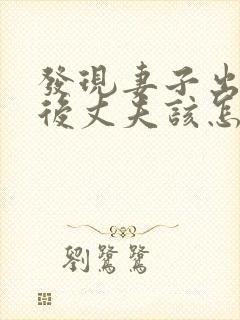 發現妻子出
後丈夫該怎
劉鷺鷺